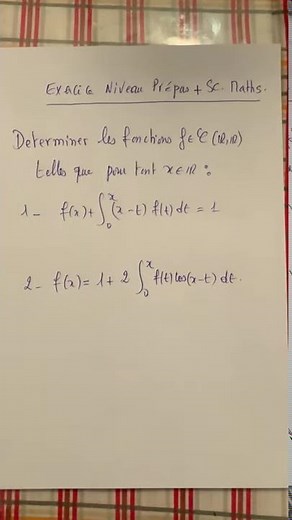 Exercice Niveau Prépas + Sc. Maths.
Determiner les fonctions f ∈ C(IR, IR)
telles que pour tout x ∈ IR :
1 - f(x) + ∫₀ˣ (x-t) f(t) dt = 1
2 - f(x) = 1 + 2 ∫₀ˣ f(t) cos(x-t) dt.